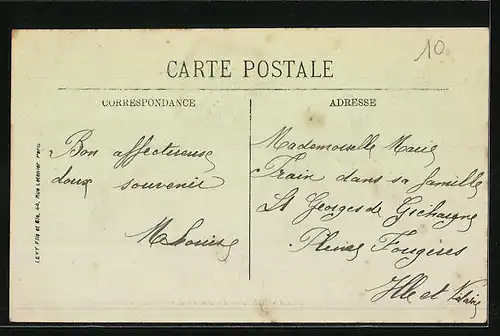 10
CARTE POSTALE
CORRESPONDANCE
ADRESSE
Bon affectueuse
doux souvenir
M Louise
Mademoiselle Marie
Train dans sa famille
St Georges de
Fougères
Ille et Vilaine
LEVY Fils et Cie, 44, Rue Letellier Paris